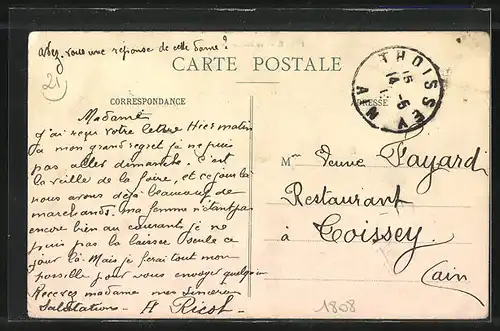 avez-vous une réponse de cette dame?
CARTE POSTALE
21
CORRESPONDANCE
ADRESSE
THOISSEY
AIN
15
14-5
Madame
j'ai reçu votre lettre Hier matin
a mon grand regret je ne puis
pas aller dimanche. C'est
la veille de la foire, et ce jour là
nous avons déjà beaucoup de
marchands. ma femme n'étant pas
encore bien au courant je ne
puis pas la laisser seule ce
jour là. Mais je ferai tout mon
possible pour vous envoyer quelqu'un
Recevez madame mes sincères
Salutations. H Ricol
Mme Veuve Payard
Restaurant
à Toissey
(ain
1808